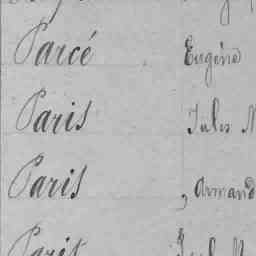 Parcé Eugène
Paris Jules
Paris , Armand
Paris